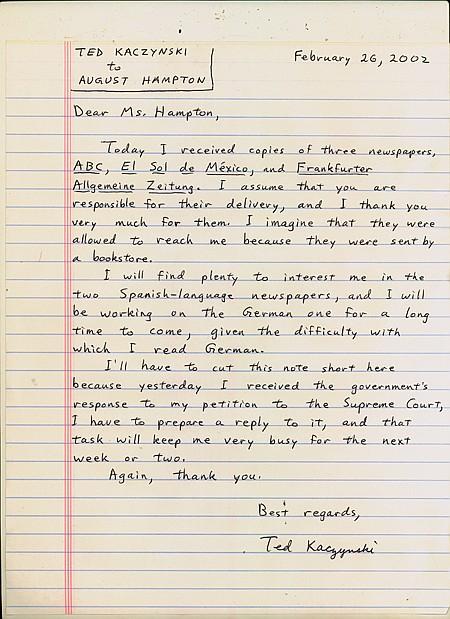 TED KACZYNSKI
to
AUGUST HAMPTON
February 26, 2002
Dear Ms. Hampton,
Today I received copies of three newspapers,
ABC, El Sol de México, and Frankfurter
Allgemeine Zeitung. I assume that you are
responsible for their delivery, and I thank you
very much for them. I imagine that they were
allowed to reach me because they were sent by
a bookstore.
I will find plenty to interest me in the
two Spanish-language newspapers, and I will
be working on the German one for a long
time to come, given the difficulty with
which I read German.
I'll have to cut this note short here
because yesterday I received the government's
response to my petition to the Supreme Court,
I have to prepare a reply to it, and that
task will keep me very busy for the next
week or two.
Again, thank you.
Best regards,
Ted Kaczynski